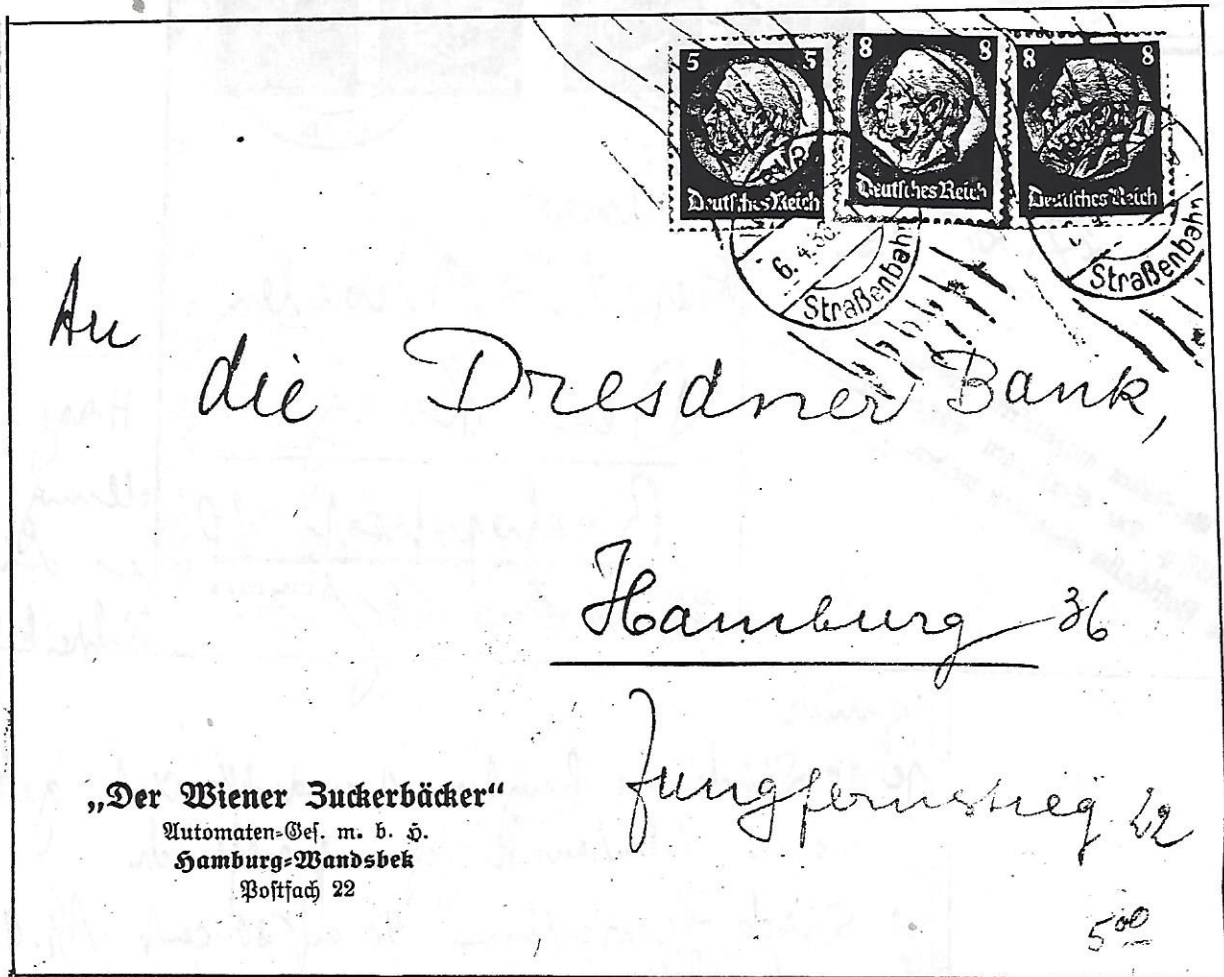 5 5
Deutsches Reich
8 8
Deutsches Reich
8 8
Deutsches Reich
6.4.38
Straßenbahn
Straßenbahn
An
die Dresdner Bank,
Hamburg 36
Jungfernstieg 22
„Der Wiener Zuckerbäcker“
Automaten-Ges. m. b. H.
Hamburg-Wandsbek
Postfach 22
5 00